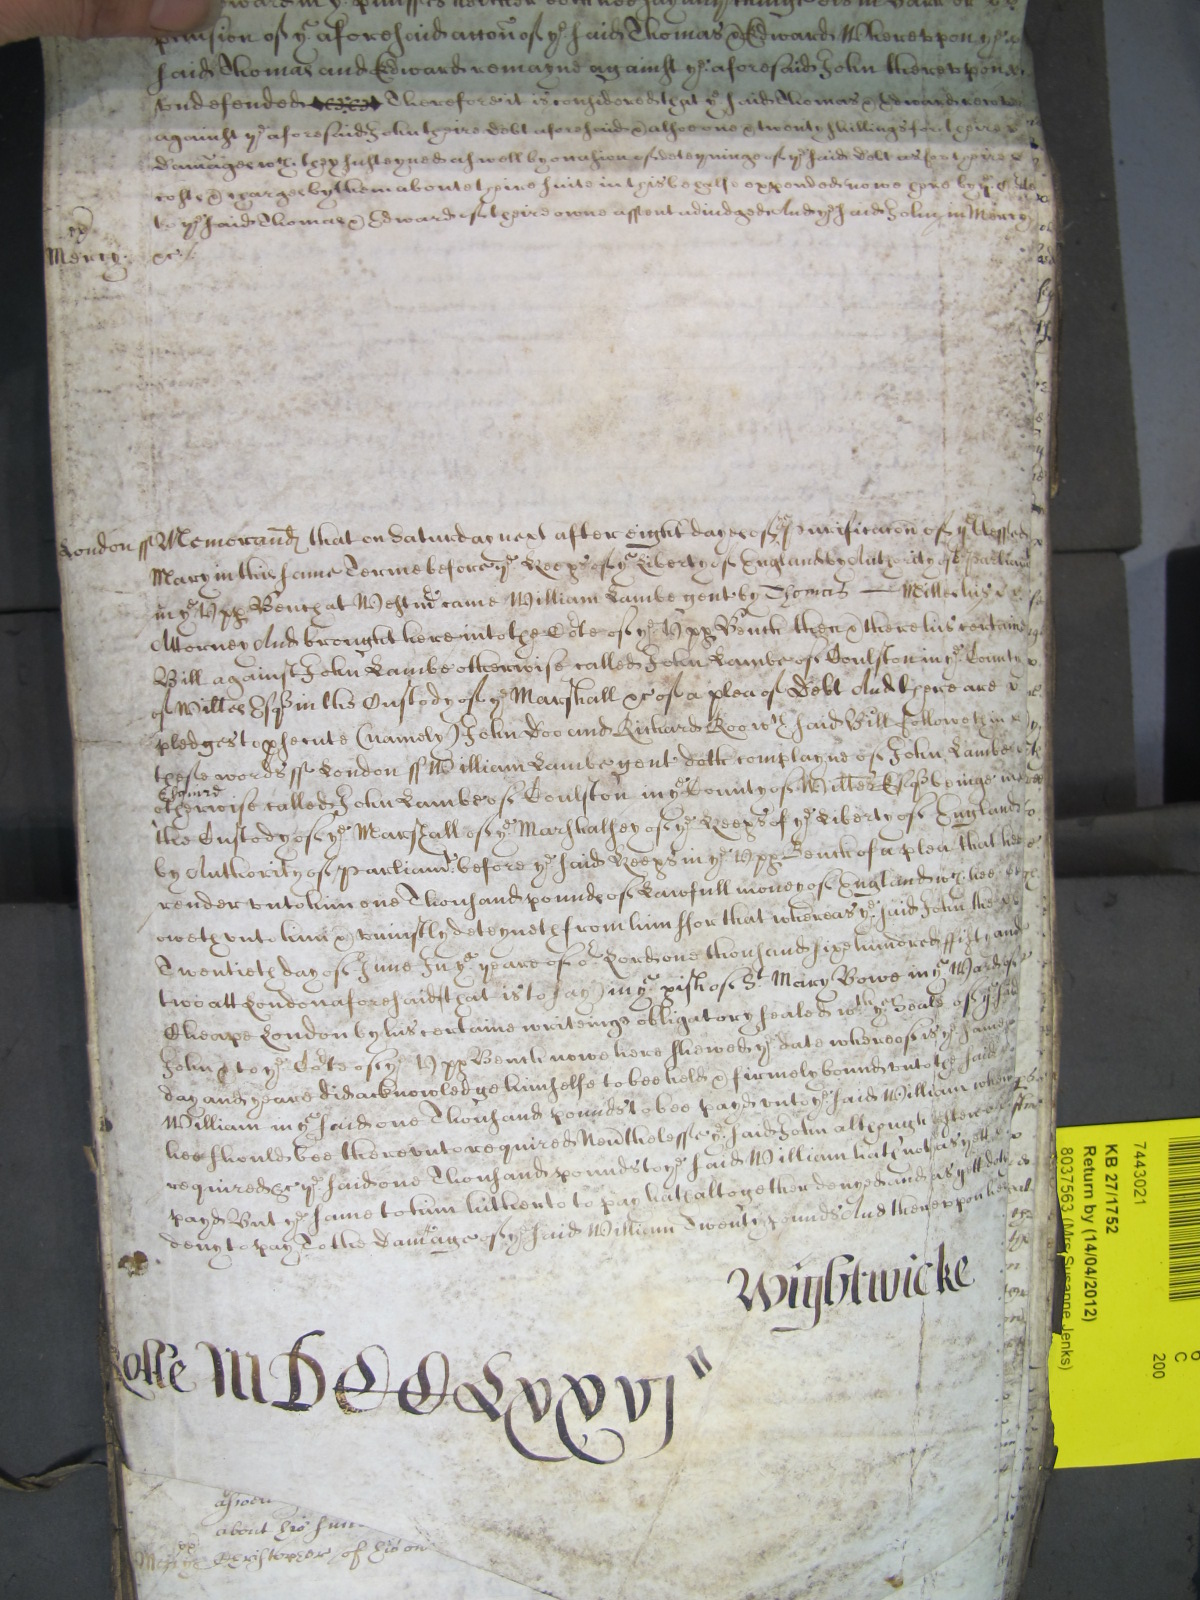 p[er]vision of ye aforesaid attorn of ye said Thomas & Edward Whereupon ye
said Thomas and Edward remayne against ye aforesaid John thereupon
undefended Therefore it is considered that ye said Thomas & Edward recover
against ye aforesaid John theire debt aforesaid & alsoe one & twenty shillings for theire
damages wch they susteyned as well by occasion of deteyninge of ye said debt as for theire
costs & charges by them about theire suite in this behalfe expended nowe here by ye Cote
to ye said Thomas & Edward of theire owne assent adiudged And ye said John in Mercy
Mercy. &c/.
London ss Memorand that on Saturday next after eight dayes of ye Purificacon of ye blessed
Mary in this same Terme before ye Keeps of ye Liberty of England by Authority of Parliamt
in ye upp Bench at Westmr came William Lambe gent by Thomas
Attorney And brought here into the Cote of ye upp Bench then & there his certaine
Bill against John Lambe otherwise called John Lambe of Coulston in ye County
of Wiltes Esqr in the Custody of ye Marshall &c of a plea of Debt And there are
pledges to psecute (namely) John Doo and Richard Roo wch said Bill followeth in
these words ss London ss William Lambe gent doth complayne of John Lambe
otherwise called John Lambe of Coulston in ye County of Wiltes Esqr beinge in
the Custody of ye Marshall of ye Marshalsey of ye Keeps of ye Liberty of England
by Authority of Parliamt before ye said Keeps in ye upp Bench of a plea that hee
render unto him one Thousand pounds of Lawfull money of England wch hee
oweth unto him & uniustly deteyneth from him ffor that whereas ye said John the
Twentieth day of June In ye yeare of or Lord one thousand sixe hundred ffifty and
two att London aforesaid (that is to say) in ye pish of St Mary Bowe in ye Ward of
Cheape London by his certaine writeinge obligatory sealed wth ye Seale of ye said
John & to ye Cote of ye upp Bench nowe here shewed ye date whereof is ye same
day and yeare did acknowledge himselfe to bee held & firmely bound unto the said
William in ye said one Thousand pounds to bee payd unto ye said William when
hee should bee thereunto required Nevthelesse ye said John although often
required &c ye said one Thousand pounds to ye said William hath not as yett
payd But ye same to him hitherto to pay hath altogether denyed and as yett doth
deny to pay To the damage of ye said William Twenty pounds And thereupon hee
Wightwicke
MDCCLxxvj
about his
Christopher of his
7443021
KB 27/1752
Return by (14/04/2012)
8037563 (Mrs Susanne Jenks)
6
C
200